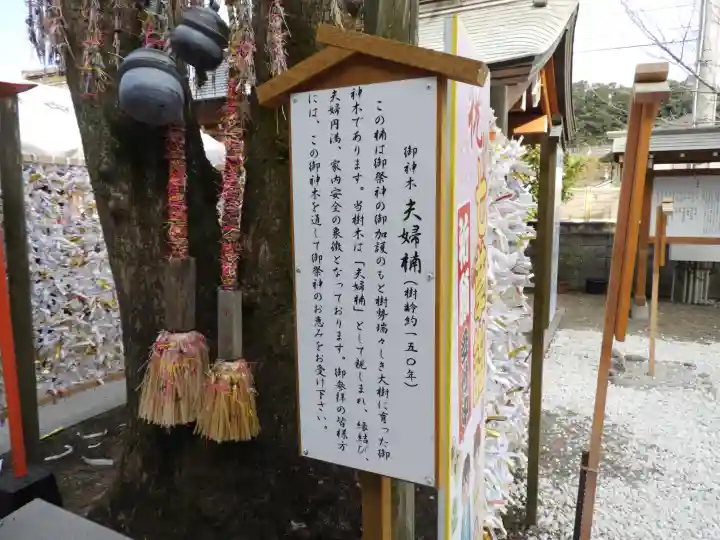 御神木 夫婦楠（樹齢約一五〇年）
この楠は御祭神の御加護のもと樹勢瑞々しき大樹に育った御
神木であります。当樹木は「夫婦楠」として親しまれ、縁結び、
夫婦円満、家内安全の象徴となっております。御参拝の皆様方
には、この御神木を通して御祭神のお恵みをお受け下さい。